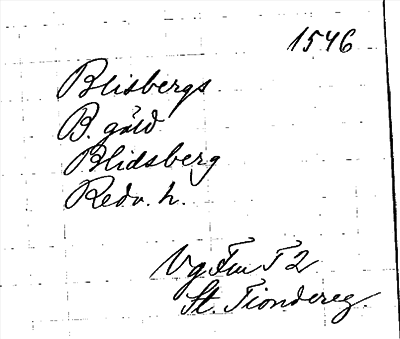 1546
Blisbergs
B. gäld
Blidsberg
Redv. h.
Vg Fm T 2
St. Tiondereg.